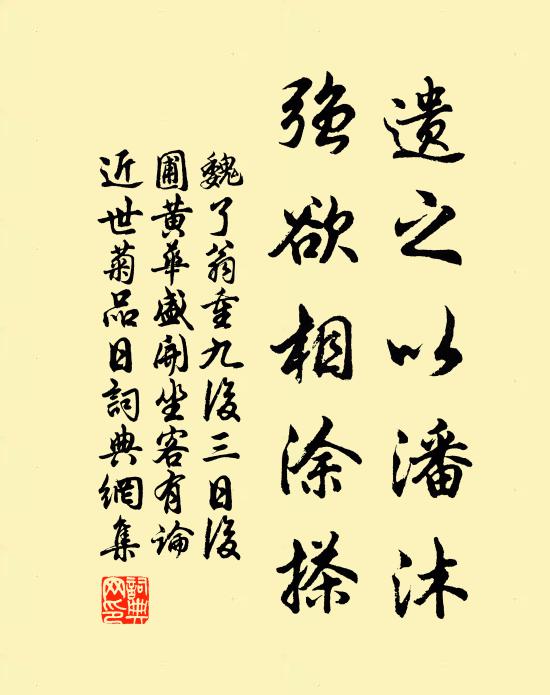 遗之以潘沐
强欲相涂搽
魏了翁重九後三日後
圃黄華盛開坐客有論
近世菊品日詞典網集
詞典
网印